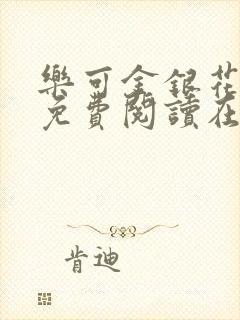 樂可金銀花
免費閱讀在
肯迪